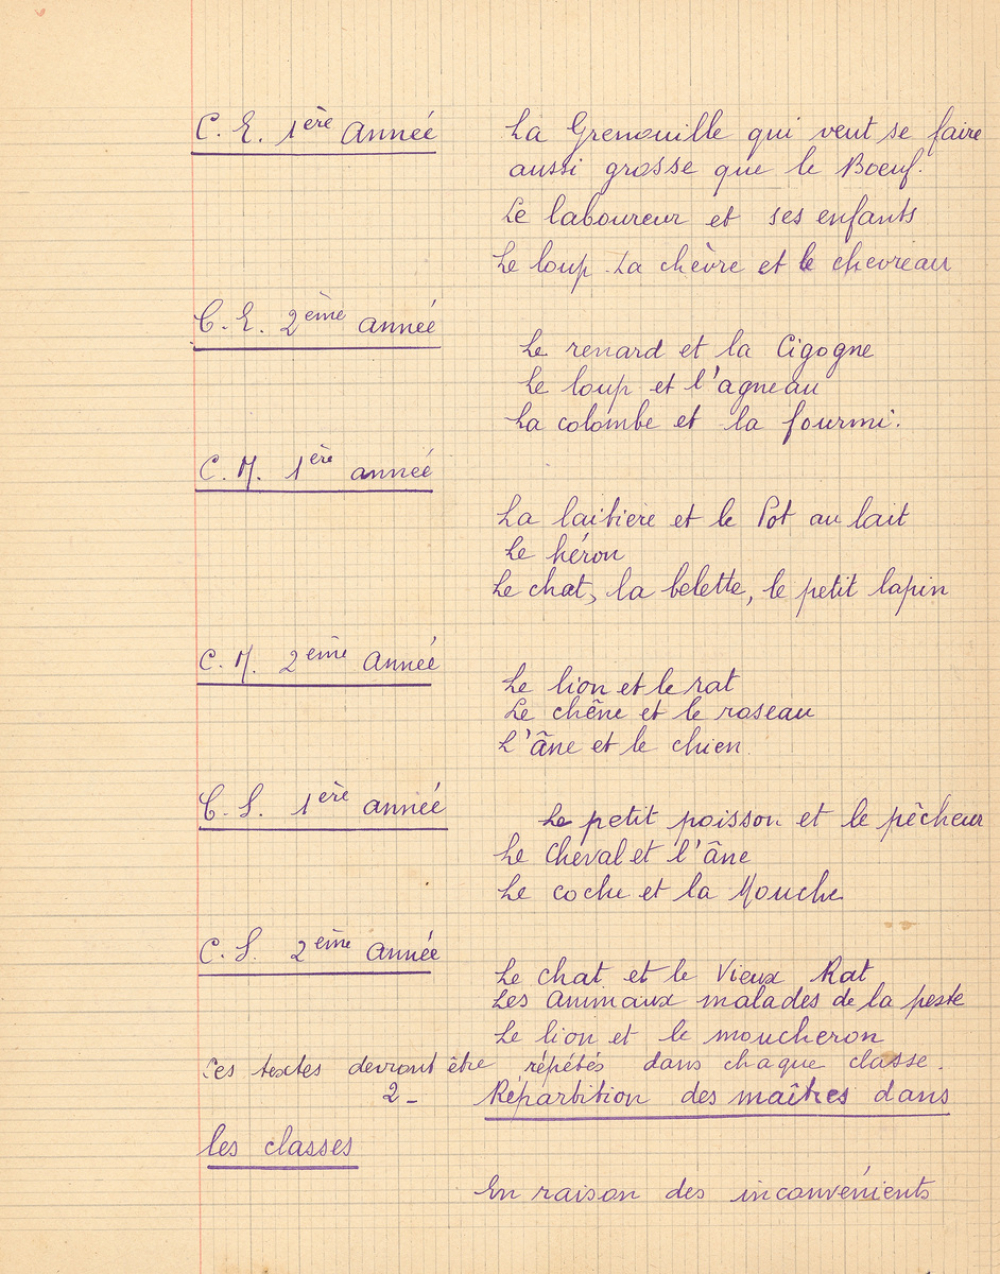 C. E. 1ère année La Grenouille qui veut se faire
aussi grosse que le Boeuf.
Le laboureur et ses enfants
Le loup. La chèvre et le chevreau
C. E. 2ème année
Le renard et la Cigogne
Le loup et l'agneau
La colombe et la fourmi.
C. M. 1ère année
La laitiere et le Pot au lait
Le héron
Le chat, la belette, le petit lapin
C. M. 2ème année
Le lion et le rat
Le chêne et le roseau
L'âne et le chien
C. S. 1ère année
Le petit poisson et le pêcheur
Le Cheval et l'âne
Le coche et la Mouche
C. S. 2ème année
Le chat et le Vieux Rat
Les Animaux malades de la peste
Le lion et le moucheron
Ces textes devront être répétés dans chaque classe.
2- Répartition des maîtres dans
les classes
En raison des inconvénients